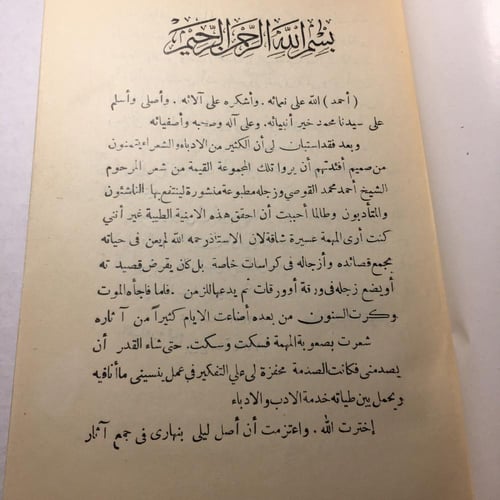 بسم الله الرحمن الرحيم
( أحمد ) الله على نعمائه . وأشكره على آلائه . وأصلى وأسلم
على سيدنا محمد خير أنبيائه . وعلى آله وصحبه وأصفيائه
وبعد فقد استبان لى أن الكثير من الادباء والشعراء يتمنون
من صميم أفئدتهم أن يروا تلك المجموعة القيمة من شعر المرحوم
الشيخ أحمد محمد القوصى وزجله مطبوعة منشورة لينتفع بها الناشئون
والمتأدبون وطالما أحببت أن احقق هذه الامنية الطيبة غير أننى
كنت أرى المهمة عسيرة شاقة لان الاستاذ رحمه الله لم يعن فى حياته
بجمع قصائده وأزجاله فى كراسات خاصة بل كان يقرض قصيدته
أو يضع زجله فى ورقة أو ورقات ثم يدعها للزمن . فلما فاجأه الموت
وكرت السنون من بعده أضاعت الايام كثيرا من آثاره
شعرت بصعوبة المهمة فسكت وسكت . حتى شاء القدر أن
يصدمنى فكانت الصدمة محفزة لى علي التفكير فى عمل ينسينى ما أنا فيه
ويحمل بين طياته خدمة الادب والادباء
إخترت الله . واعتزمت أن أصل ليلى بنهارى فى جمع آثار